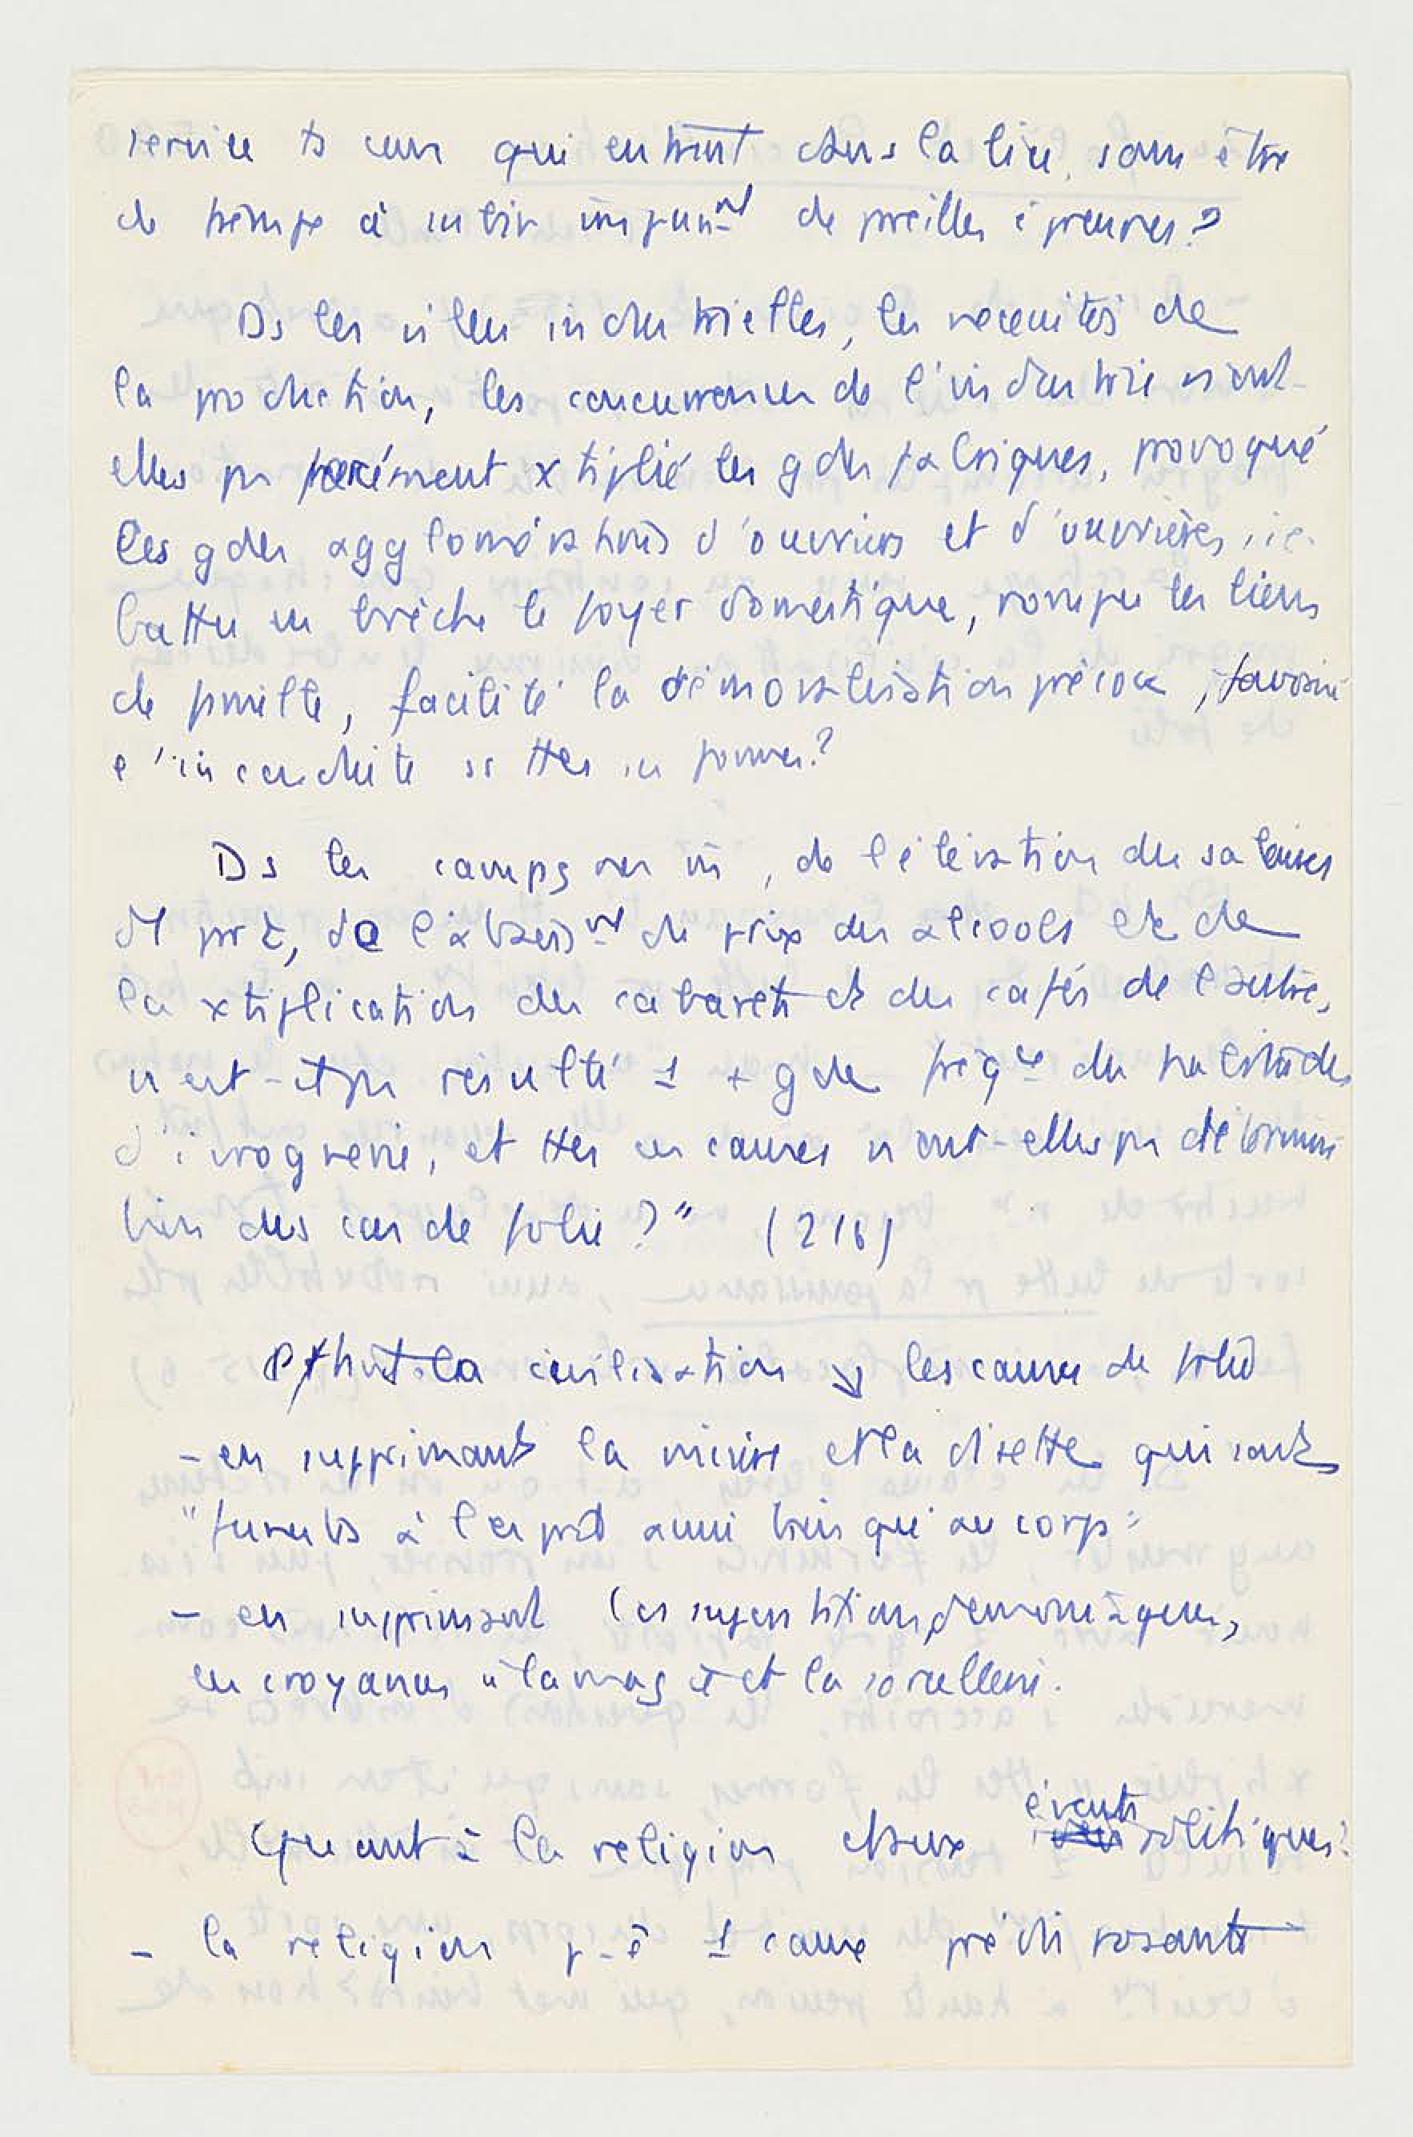 service ts ceux qui entrent dans la lice, sans être
de trempe à subir impunnt de preilles épreuves ?
Ds les villes industrielles, les nécessités de
la production, les concurrences de l'industrie n'ont-
elles pas forcément xtiplié les gdes fabriques, provoqué
les gdes agglomérations d'ouvriers et d'ouvrières,
battu en brèche le foyer domestique, rompu les liens
de famille, facilité la démoralisation précoce, favorisé
l'inconduite ss ttes ses formes ?
Ds les campagnes m̄, de l'élévation des salaires
d'1 part, de l'abaissnt du prix des alcools et de
la xtiplication des cabarets et des cafés de l'autre,
n'est-il pas résulté 1 + gde fréqce des habitudes
d'ivrognerie, et ttes ces causes n'ont-elles pas déterminé
bien des cas de folie ? " (216)
Pthutla civilisation ↘ les causes de folie
- en supprimant la misère et la disette qui sont
"funestes à l'esprit aussi bien qu'au corps"
- en supprimant les superstitions démoniaques,
les croyances à la magie et la sorcellerie.
Quant à la religion et aux évents politiques ?
- la religion p-ê 1 cause prédisposante